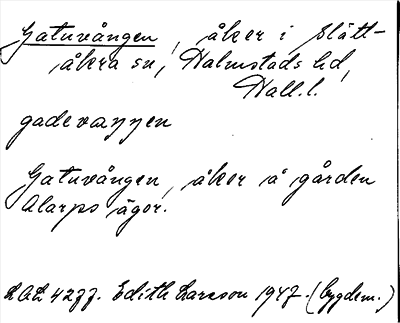 Gatuvången, åker i Slätt-
åkra sn, Halmstads hd,
Hall.l.
gadevaŋŋen
Gatuvången, åker å gården
Alarps ägor.
LAL 4277. Edith Larsson 1947. (bygdem.)